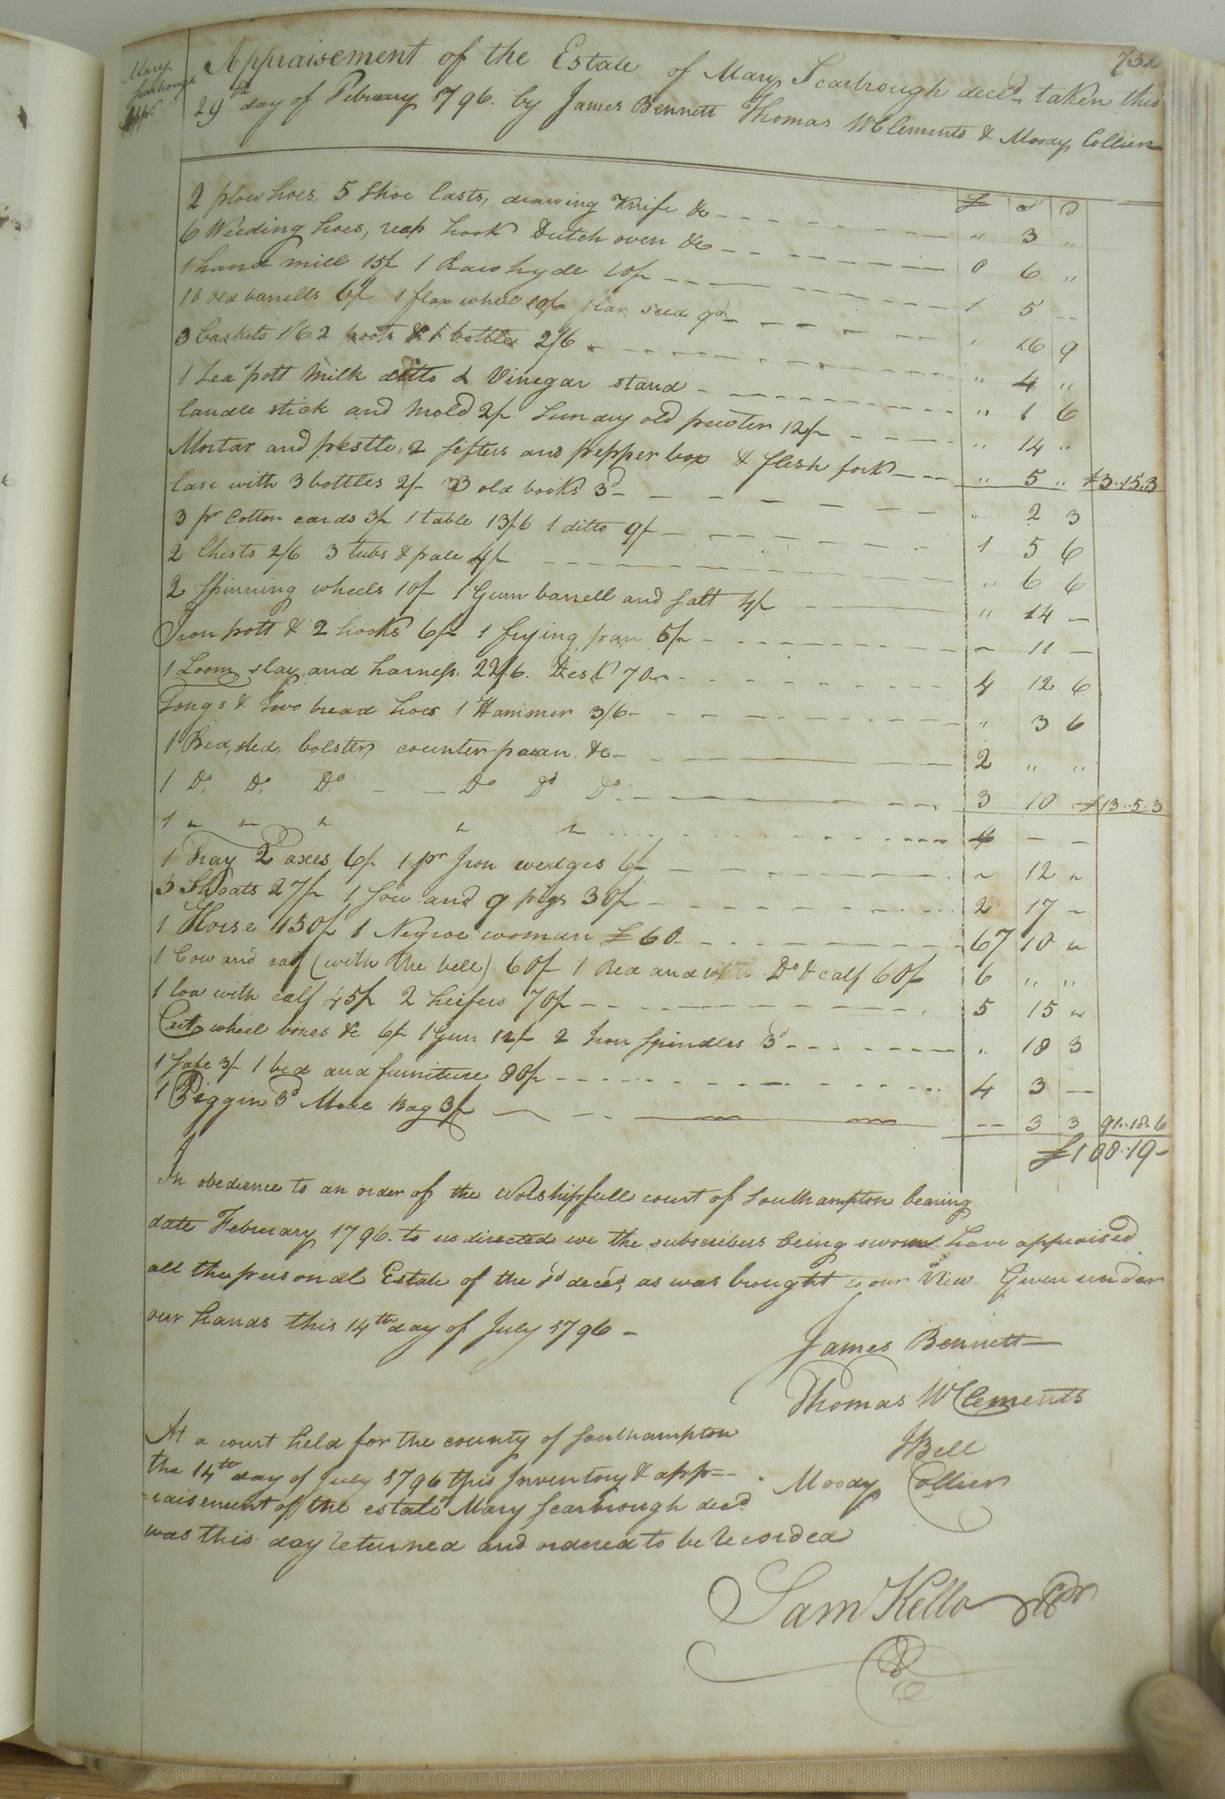 Mary
Scarbrough
Appt
752
Appraisement of the Estate of Mary Scarbrough decd. taken this
29th day of February 1796. by James Bennett Thomas W Clements & Moody Collier
£ s d
2 plow hoes, 5 Shoe lasts, drawing Knife &c " 3 "
6 Weeding hoes, reap hook Dutch oven &c 0 6 "
1 hand mill 15/ 1 Raw hyde 10/ 1 5 --
10 old barrells 6/ 1 flax wheel 10/ seed 9d " 16 9
3 baskets 1/6 2 & bottles 2/6 " 4 "
1 Tea pott Milk ditto & Vinegar stand " 1 6
Candle stick and Mold 2/ Sunday old pewter 12/ " 14 "
Mortar and pestle, 2 sifters and pepper box & flesh fork " 5 " £3..15..3
Case with 3 bottles 2/ 3 old books 3d " 2 3
3 pr Cotton cards 3/ 1 table 13/6 1 ditto 9/ 1 5 6
2 Chests 2/6 3 tubs & pale 4/ " 6 6
2 Spinning wheels 10/ 1 Gum barrell and salt 4/ " 14 -
Iron pott & 2 hooks 6/ 1 frying pan 5/ " 11 -
1 Loom, slay and harness. 22/6. Desk 70/ 4 12 6
Tongs & two bread hoes 1 Hammer 3/6 " 3 6
1 Bed, sted, bolster, counterpaan &c 2 " "
1 Do. Do. Do Do Do Do 3 10 - £13..5..3
1 " " " " " 4 - -
1 Tray 2 axes 6/ 1 pr Iron wedges 6/ " 12 "
3 Shoats 27/ 1 Sow and 9 pigs 30/ 2 17 -
1 Horse 150/ 1 Negroe woman £60 67 10 "
1 Cow and calf (with the bell) 60/ 1 Red and Do & calf 60/ 6 " "
1 Cow with calf 45/ 2 heifers 70/ 5 15 "
wheel boxes &c 6/ 1 Gun 12/ 2 Iron Spindles 3d " 18 3
1 3/ 1 bed and furniture 80/ 4 3 --
1 Piggin 3d Meal Bag 3/ -- 3 3 91..18.6
£108.19-
In obedience to an order of the Worshipfull court of Southampton bearing
date February 1796. to us directed we the subscribers being sworn have appraised
all the personal Estate of the sd decd, as was brought to our view Given under
our hands this 14th day of July 1796 -
James Bennett
Thomas W Clements
JBell
Moody Collier
At a court held for the county of Southampton
the 14th day of July 1796 this Inventory & app=
raisement of the estate Mary Scarbrough decd
was this day returned and ordered to be recorded
Sam Kello